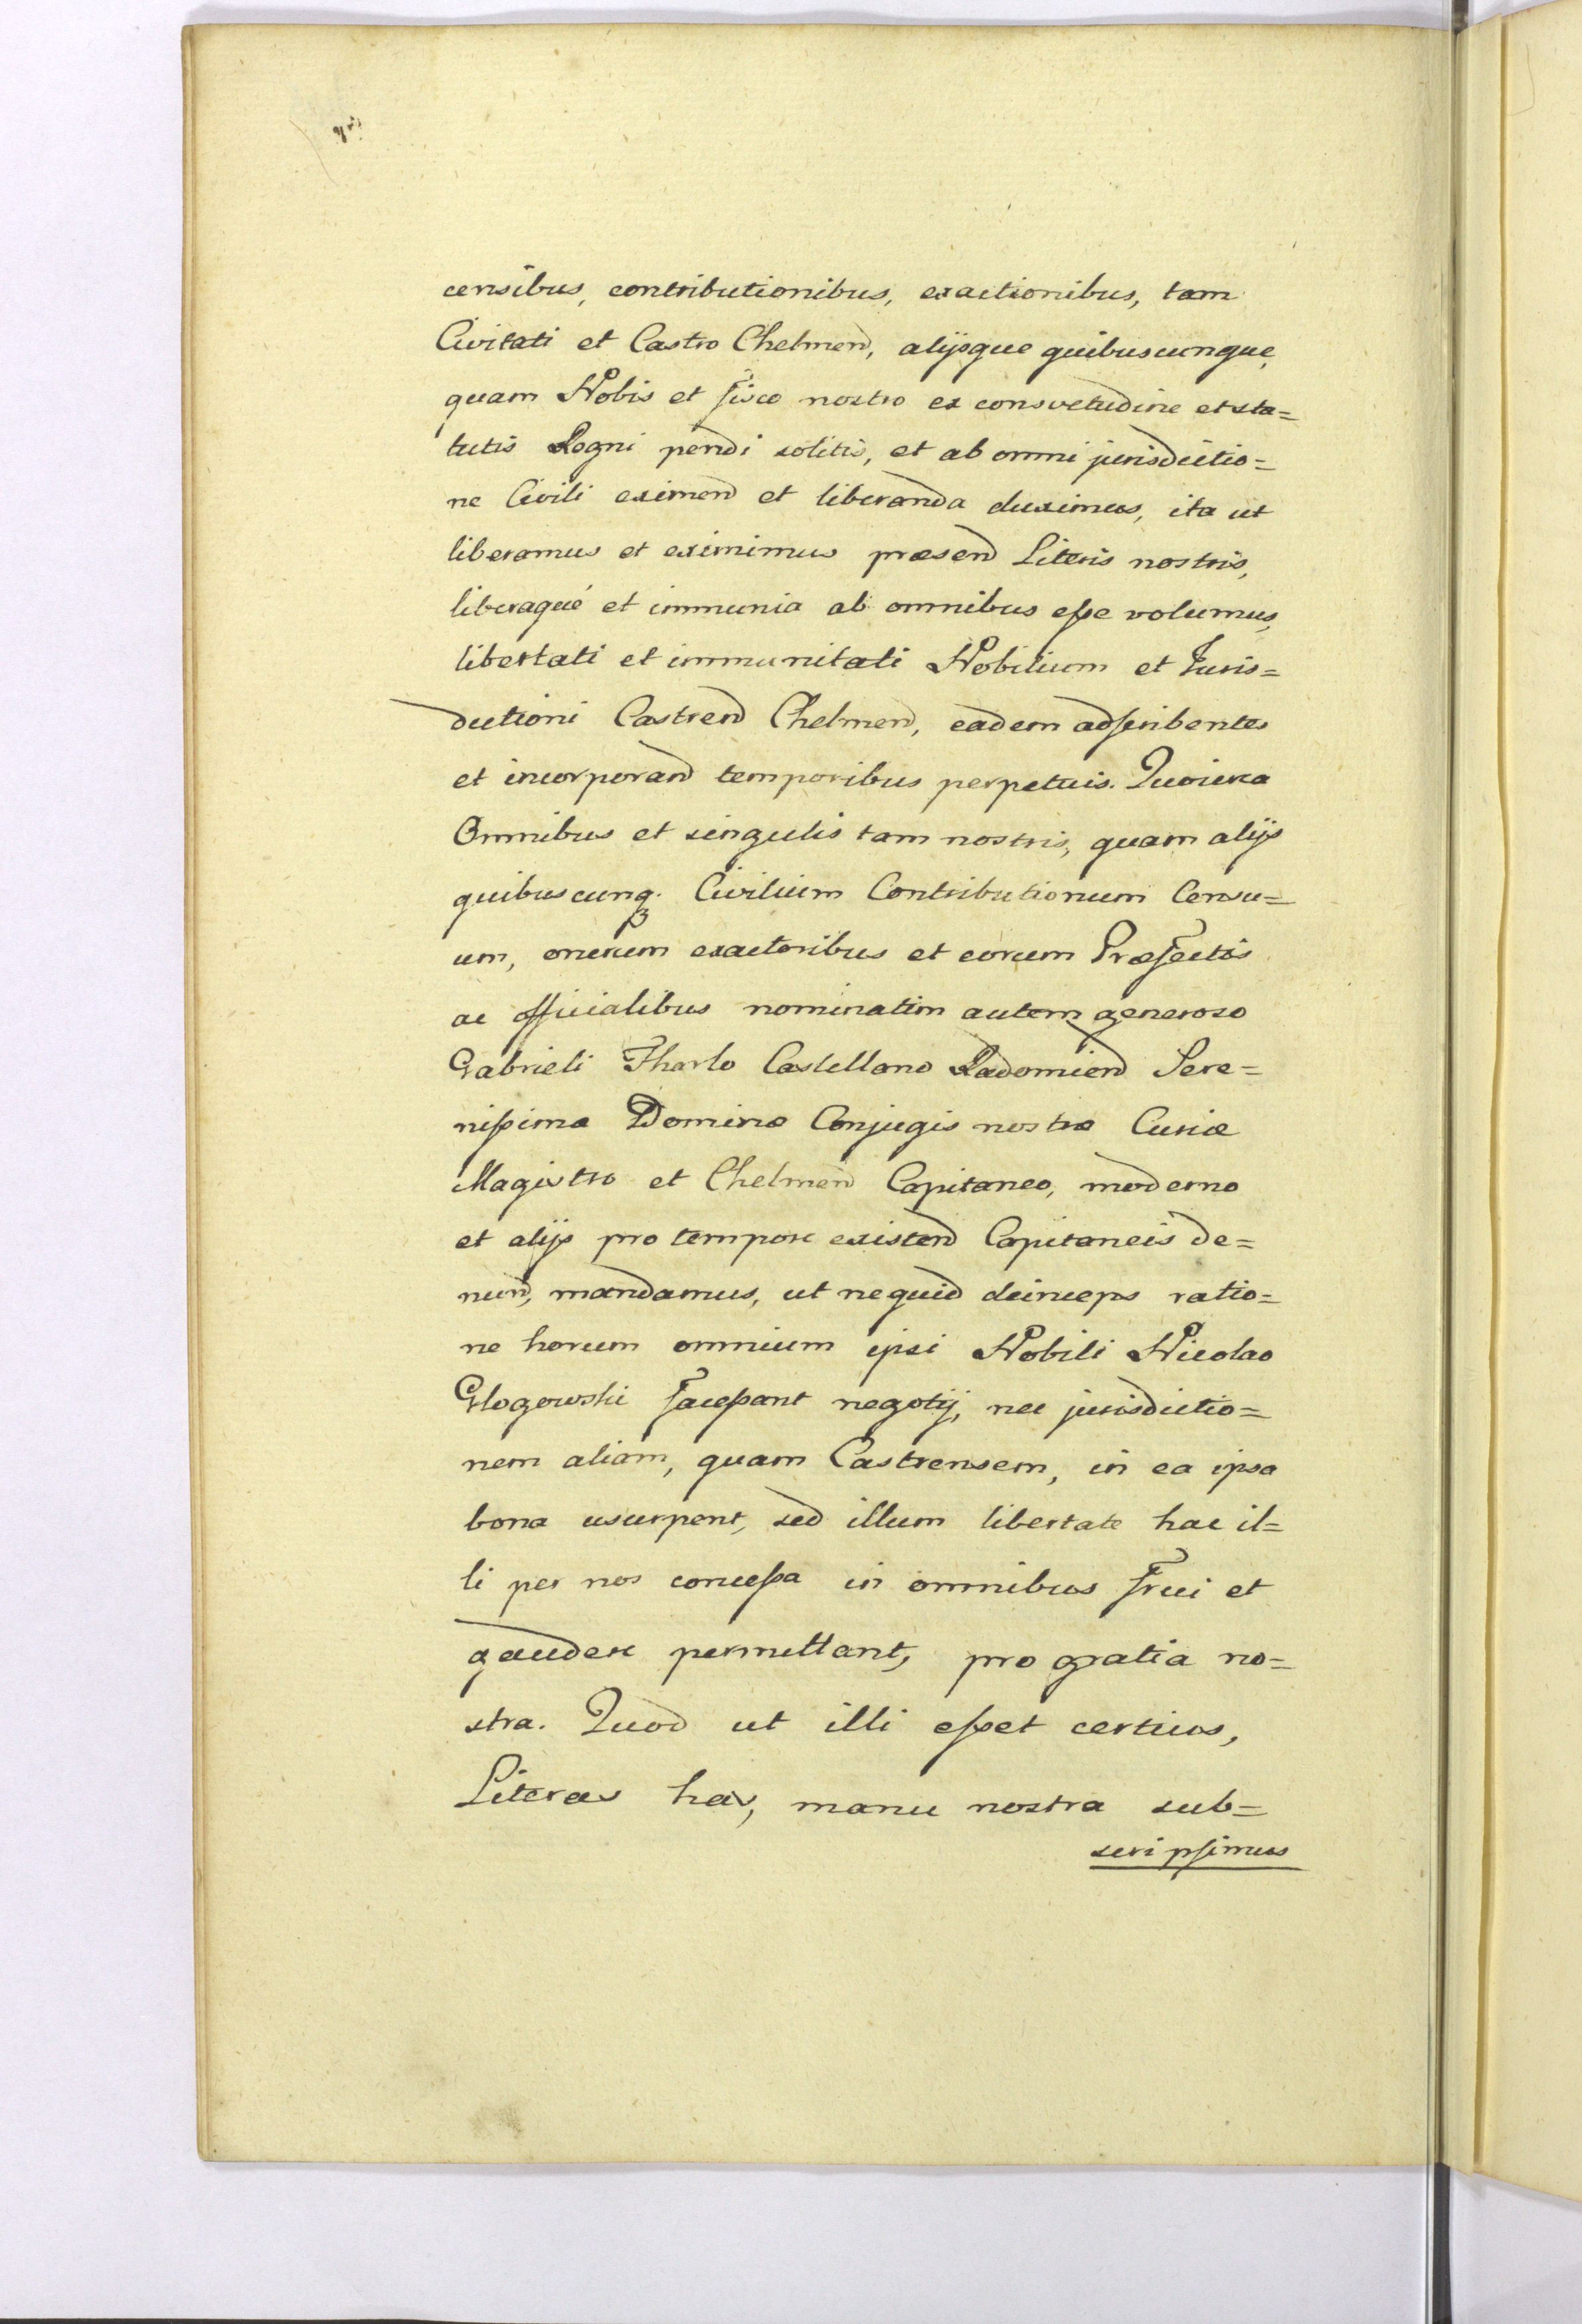 censibus, contributionibus, exactionibus, tam
Civitati et Castro Chelmen, alijsque quibuscunque,
quam Nobis et fisco nostro ex consvetudine et sta=
tutis Regni pendi solitis, et ab omni jurisdictio=
ne Civili eximend et liberanda duximus, ita ut
liberamus et eximimus præsend Literis nostris,
liberaque et immunia ab omnibus esse volumus,
libertati et immunitati Nobilium et Juris=
dictioni Castrend Chelmend, eadem adscribentes
et incorporand temporibus perpetuis. Quocirca
Omnibus et singulis tam nostris, quam alijs
quibuscunq. Civilium Contributionum Censu=
um, onerum exactoribus et eorum Præfectis
ac officialibus nominatim autem generoso
Gabrieli Tharlo Castellano Radomiend Sere=
nissimæ Dominæ Conjugis nostræ Curiæ
Magistro et Chelmend Capitaneo, moderno
et alijs pro tempore existend Capitaneis de=
nund, mandamus, ut ne quid deinceps ratio=
ne horum omnium ipsi Nobili Nicolao
Glogowski facessant negotij, nec jurisdictio=
nem aliam, quam Castrensem, in ea ipsa
bona usurpent, sed illum libertate hac il=
li per nos concessa in omnibus frui et
gaudere permittant, pro gratia no=
stra. Quod ut illi esset certius,
Literas has, manu nostra sub=
scripsimus